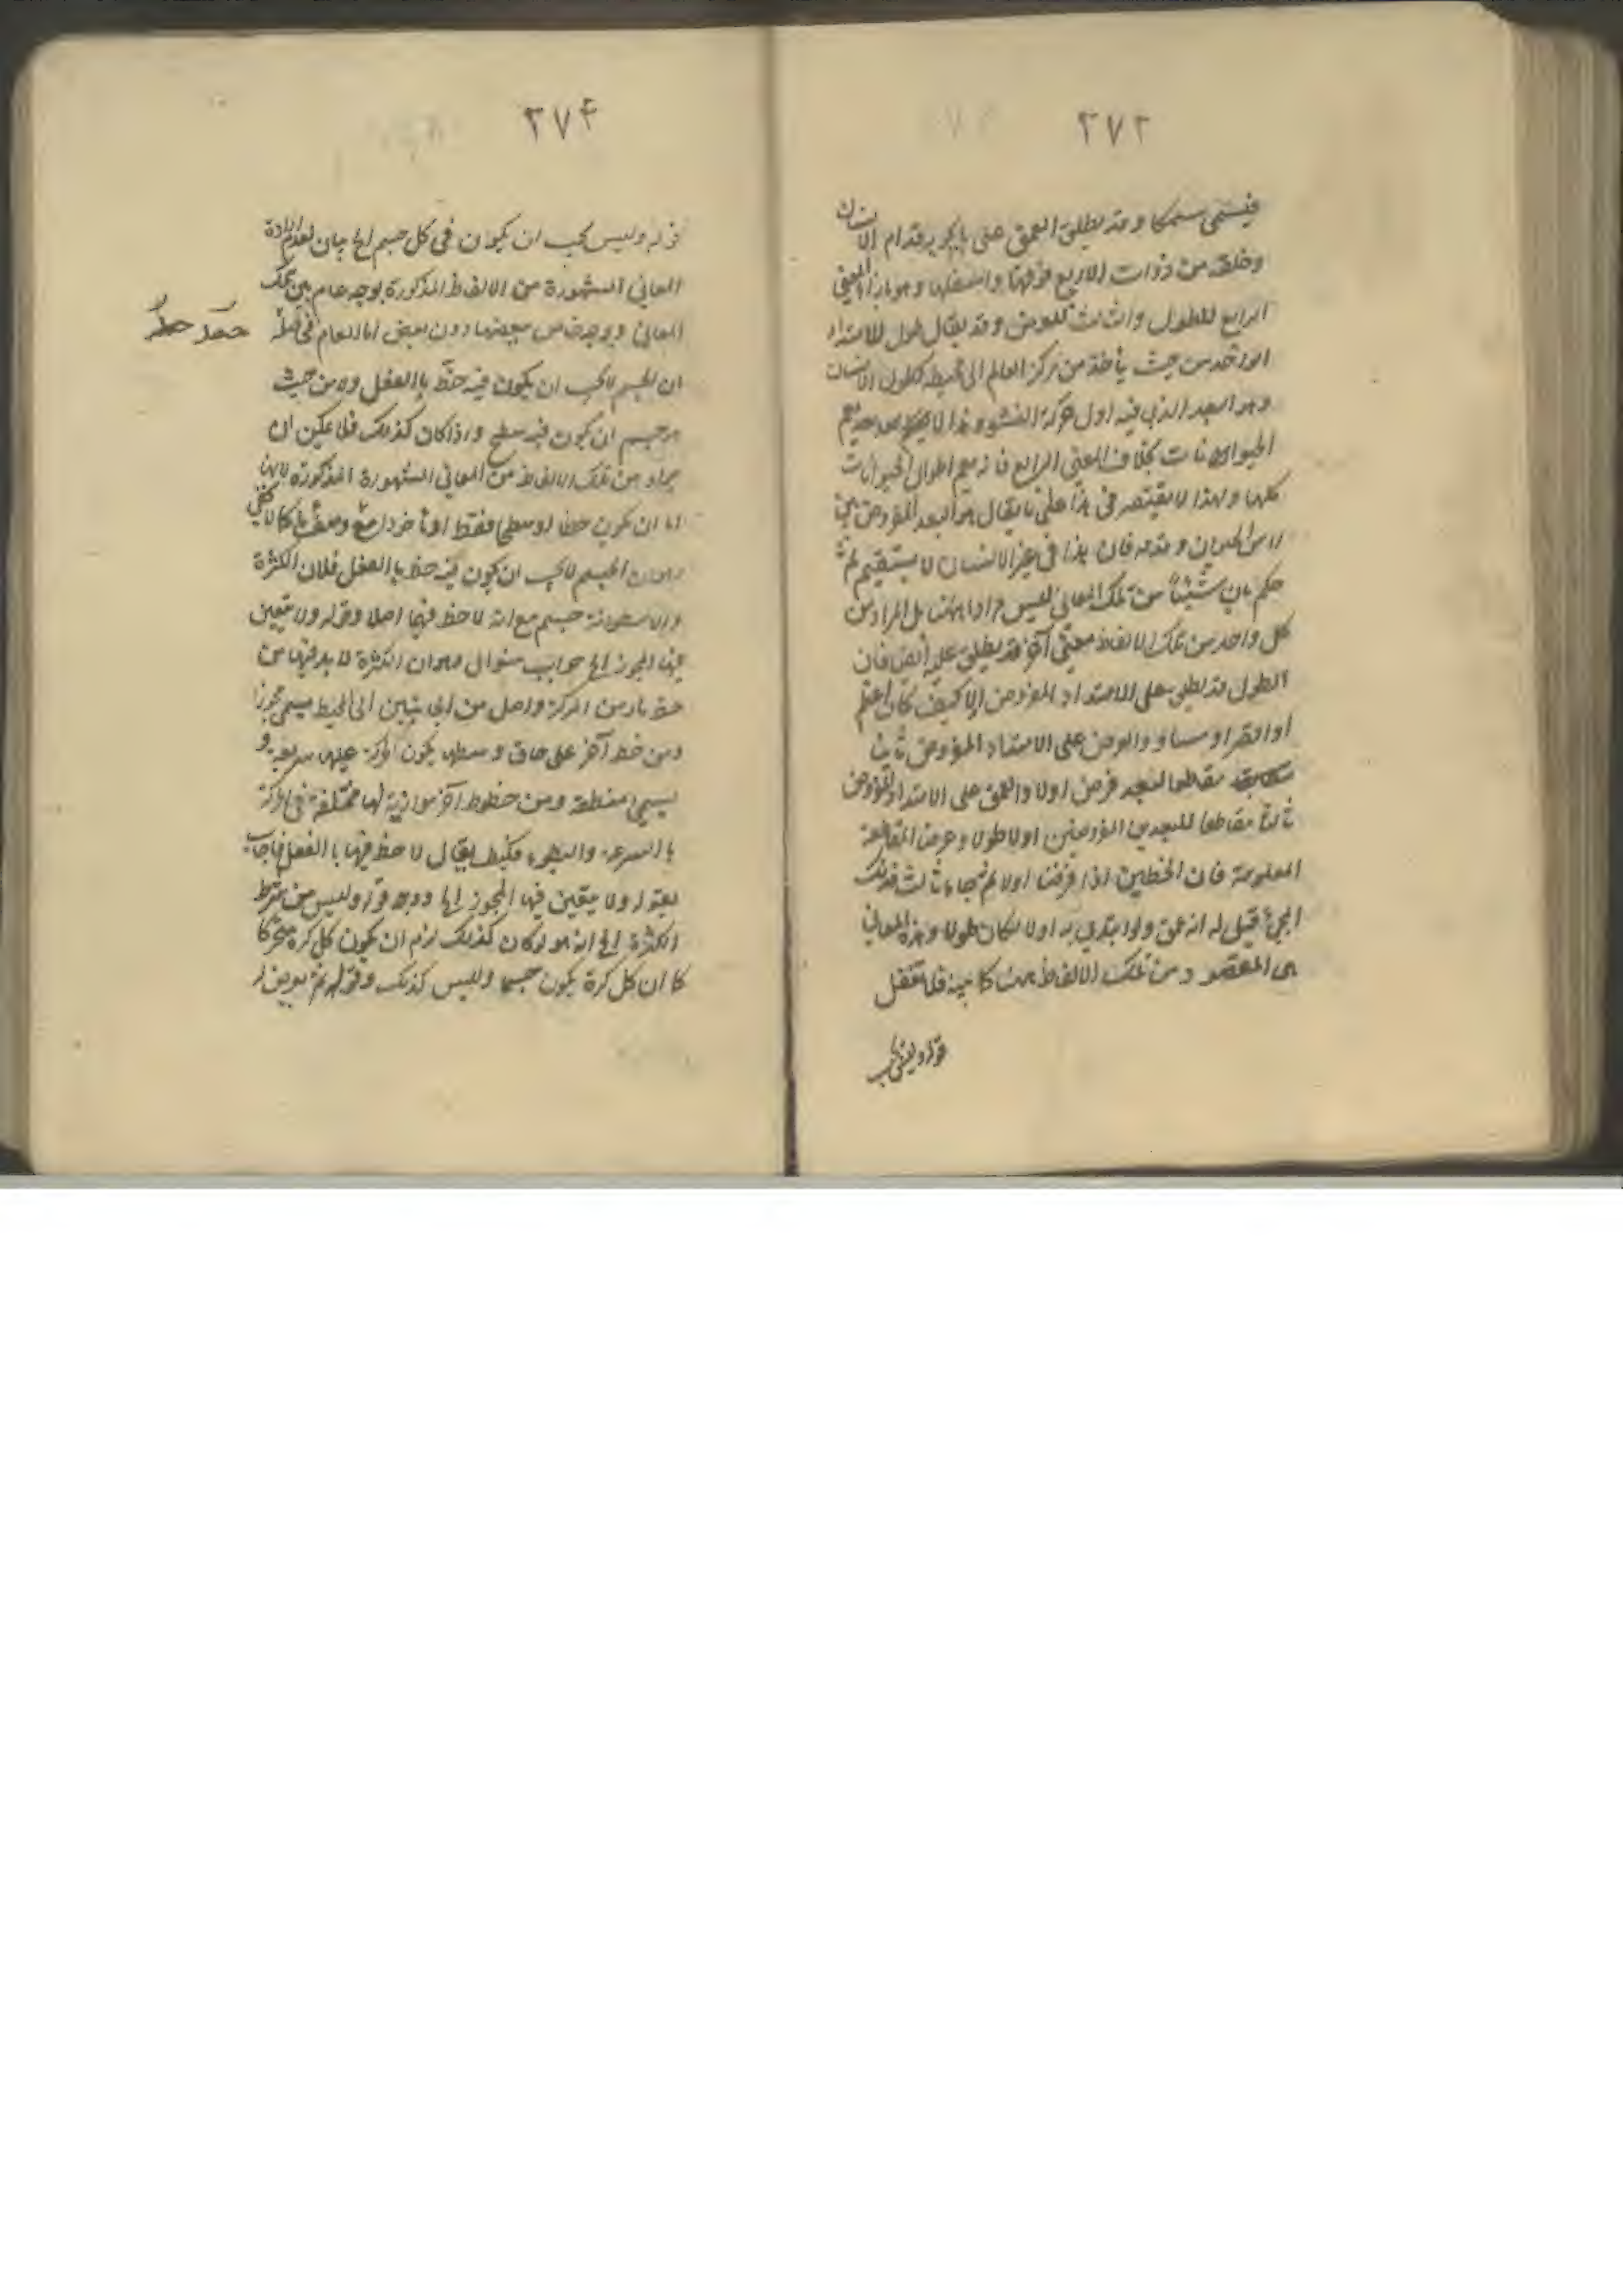 ٢٧٣
فيسمى سمكا وقد يطلق العمق على ما يحويه قدام الانسان
وخلفه من ذوات الاربع فوقها واسفلها وهو بازاء المعنى
الرابع للطول والثالث للعرض وقد يقال طول للامتداد
الواحد من حيث يأخذ من مركز العالم الى محيطه كطول الانسان
وهو البعد الذى فيه اول حركة النشو وهذا لا
الحيوانات بخلاف المعنى الرابع فانه يعم اطوال الحيوانات
كلها ولهذا لا يقتصر فى هذا على ما يقال هو البعد المفروض بين
راس الحيوان وقدمه فان هذا فى غير الانسان لا يستقيم ثم
حكم بان شيئا من تلك المعانى ليس مرادا ههنا بل المراد من
كل واحد من تلك الالفاظ معنى آخر قد يطلق عليه ايضا فان
الطول قد يطلق على الامتداد المفروض اولا كيف كان اعظم
او اقصر او مساو والعرض على الامتداد المفروض ثانيا
مقاطعا لبعد فرض اولا والعمق على الامتداد المفروض
ثالثا مقاطعا للبعدين المفروضين اولا طولا وعرضا المقاطعة
المعلومة فان الخطين اذا فرضا اولا ثم جاء ثالث فذلك
الجئ قيل له انه عمق ولو ابتدى به اولا لكان طولا وهذه المعانى
هى المقصود من تلك الالفاظ ههنا كما بينه فلا تغفل
قوله وليس يجب
٢٧۴
قوله وليس يجب ان يكون فى كل جسم الخ بيان لعدم ارادة
المعانى المشهورة من الالفاظ المذكورة بوجه عام بين تلك
المعانى وبوجه خاص ببعضها دون بعض اما العام
ان الجسم لا يجب ان يكون فيه خط بالفعل ولا من حيث
هو جسم ان يكون فيه سطح واذا كان كذلك فلا يمكن ان
يراد من تلك الالفاظ من المعانى المشهورة المذكورة لانها
اما ان تكون خطا او سطحا فقط او مأخوذا
اما ان الجسم لا يجب ان يكون فيه خط بالفعل فلان الكرة
والاسطوانة جسم مع انه لا خط فيها اصلا وقوله ولا يتعين
فيها المحور الخ جواب سئوال وهو ان الكرة لا بد فيها من
خط مار من المركز واصل من الجانبين الى المحيط يسمى محورا
ومن خط آخر على حاق وسطها يكون الحركة عليها سريعة و
يسمى منطقة ومن خطوط آخر موازية لها مختلفة فى الحركة
بالسرعة والبطوء فكيف يقال لا خط فيها بالفعل فاجاب
بقوله ولا يتعين فيها المحور الخ ووجه قوله وليس من شرط
الكرة الخ انه لو كان كذلك لزم ان يكون كل كرة متحركا
كما ان كل كرة يكون جسما وليس كذلك وقوله ثم